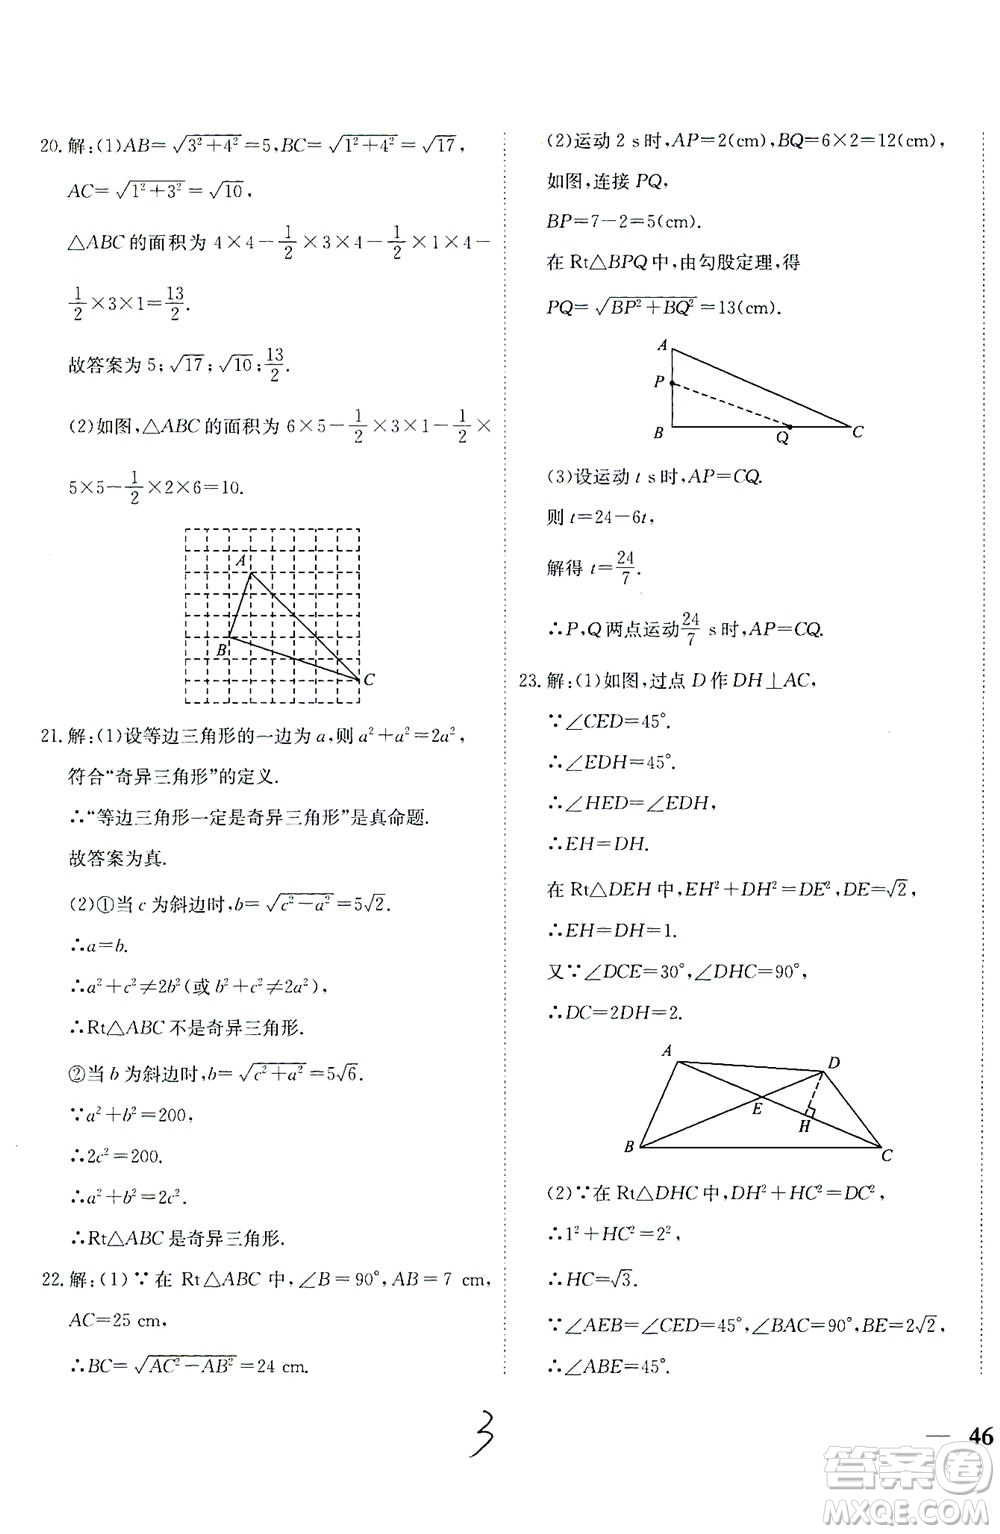 20. 解:(1)AB=√(3²+4²)=5,BC=√(1²+4²)=√17,
AC=√(1²+3²)=√10,
△ABC的面积为 4×4-1/2×3×4-1/2×4×1-
1/2×3×1=13/2.
故答案为 5;√17;√10;13/2.
(2)如图,△ABC的面积为 6×5-1/2×3×1-1/2×
5×5-1/2×2×6=10.
A
B
C
21. 解:(1)设等边三角形的一边为a,则a²+a²=2a²,
符合“奇异三角形”的定义.
∴“等边三角形一定是奇异三角形”是真命题.
故答案为真.
(2)①当c为斜边时,b=√(c²-a²)=5√2.
∴a=b.
∴a²+c²≠2b²(或b²+c²≠2a²),
∴Rt△ABC不是奇异三角形.
②当b为斜边时,b=√(c²+a²)=5√6.
∵a²+b²=200,
∴2c²=200.
∴a²+b²=2c².
∴Rt△ABC是奇异三角形.
22. 解:(1)∵在 Rt△ABC中,∠B=90°,AB=7 cm,
AC=25 cm,
∴BC=√(AC²-AB²)=24 cm.
(2)运动2 s时,AP=2(cm),BQ=6×2=12(cm),
如图,连接PQ,
BP=7-2=5(cm).
在Rt△BPQ中,由勾股定理,得
PQ=√(BP²+BQ²)=13(cm).
A
P
B
Q
C
(3)设运动t s时,AP=CQ.
则t=24-6t,
解得t=24/7.
∴P,Q两点运动24/7 s时,AP=CQ.
23. 解:(1)如图,过点D作DH⊥AC,
∵∠CED=45°.
∴∠EDH=45°.
∴∠HED=∠EDH,
∴EH=DH.
在Rt△DEH中,EH²+DH²=DE²,DE=√2,
∴EH=DH=1.
又∵∠DCE=30°,∠DHC=90°,
∴DC=2DH=2.
A
D
E
H
B
C
(2)∵在Rt△DHC中,DH²+HC²=DC²,
∴1²+HC²=2²,
∴HC=√3.
∵∠AEB=∠CED=45°,∠BAC=90°,BE=2√2,
∴∠ABE=45°.
3
— 46
答案圈
MXQE.COM